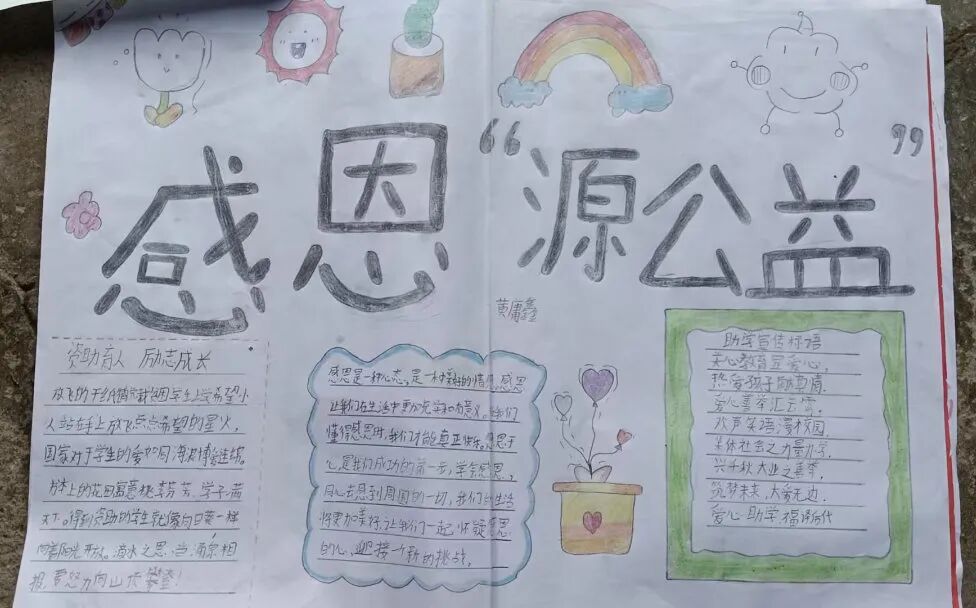 感恩“源公益”
黄庸鑫
资助育人 励志成长
放飞的千纸鹤承载贫困学生上学希望,小
人站在手上放飞点点希望的星火,
国家对于学生的爱如同海
书本上的花田寓意桃李芬芳、学子满
天下。得到资助的学生就像向日葵一样
向着阳光开放。滴水之恩,当涌泉相
报,要努力向山顶攀登!
感恩是一种心态,是一种美好的情感,感恩
让我们在生活中更加充实和有意义。我们
懂得感恩时,我们才能真正快乐。感恩于
心,是我们成功的第一步,学会感恩,
用心去感到周围的一切,我们的生活
将更加美好,让我们一起,怀疑感恩
的心,迎接一个新的挑战。
助学宣传标语
关心教育显爱心,
热爱孩子献真情。
爱心善举汇云霄,
欢声笑语满校园,
集体社会之力量
兴千秋大业之善事,
筑梦未来,大爱无边,
爱心助学,福泽后代